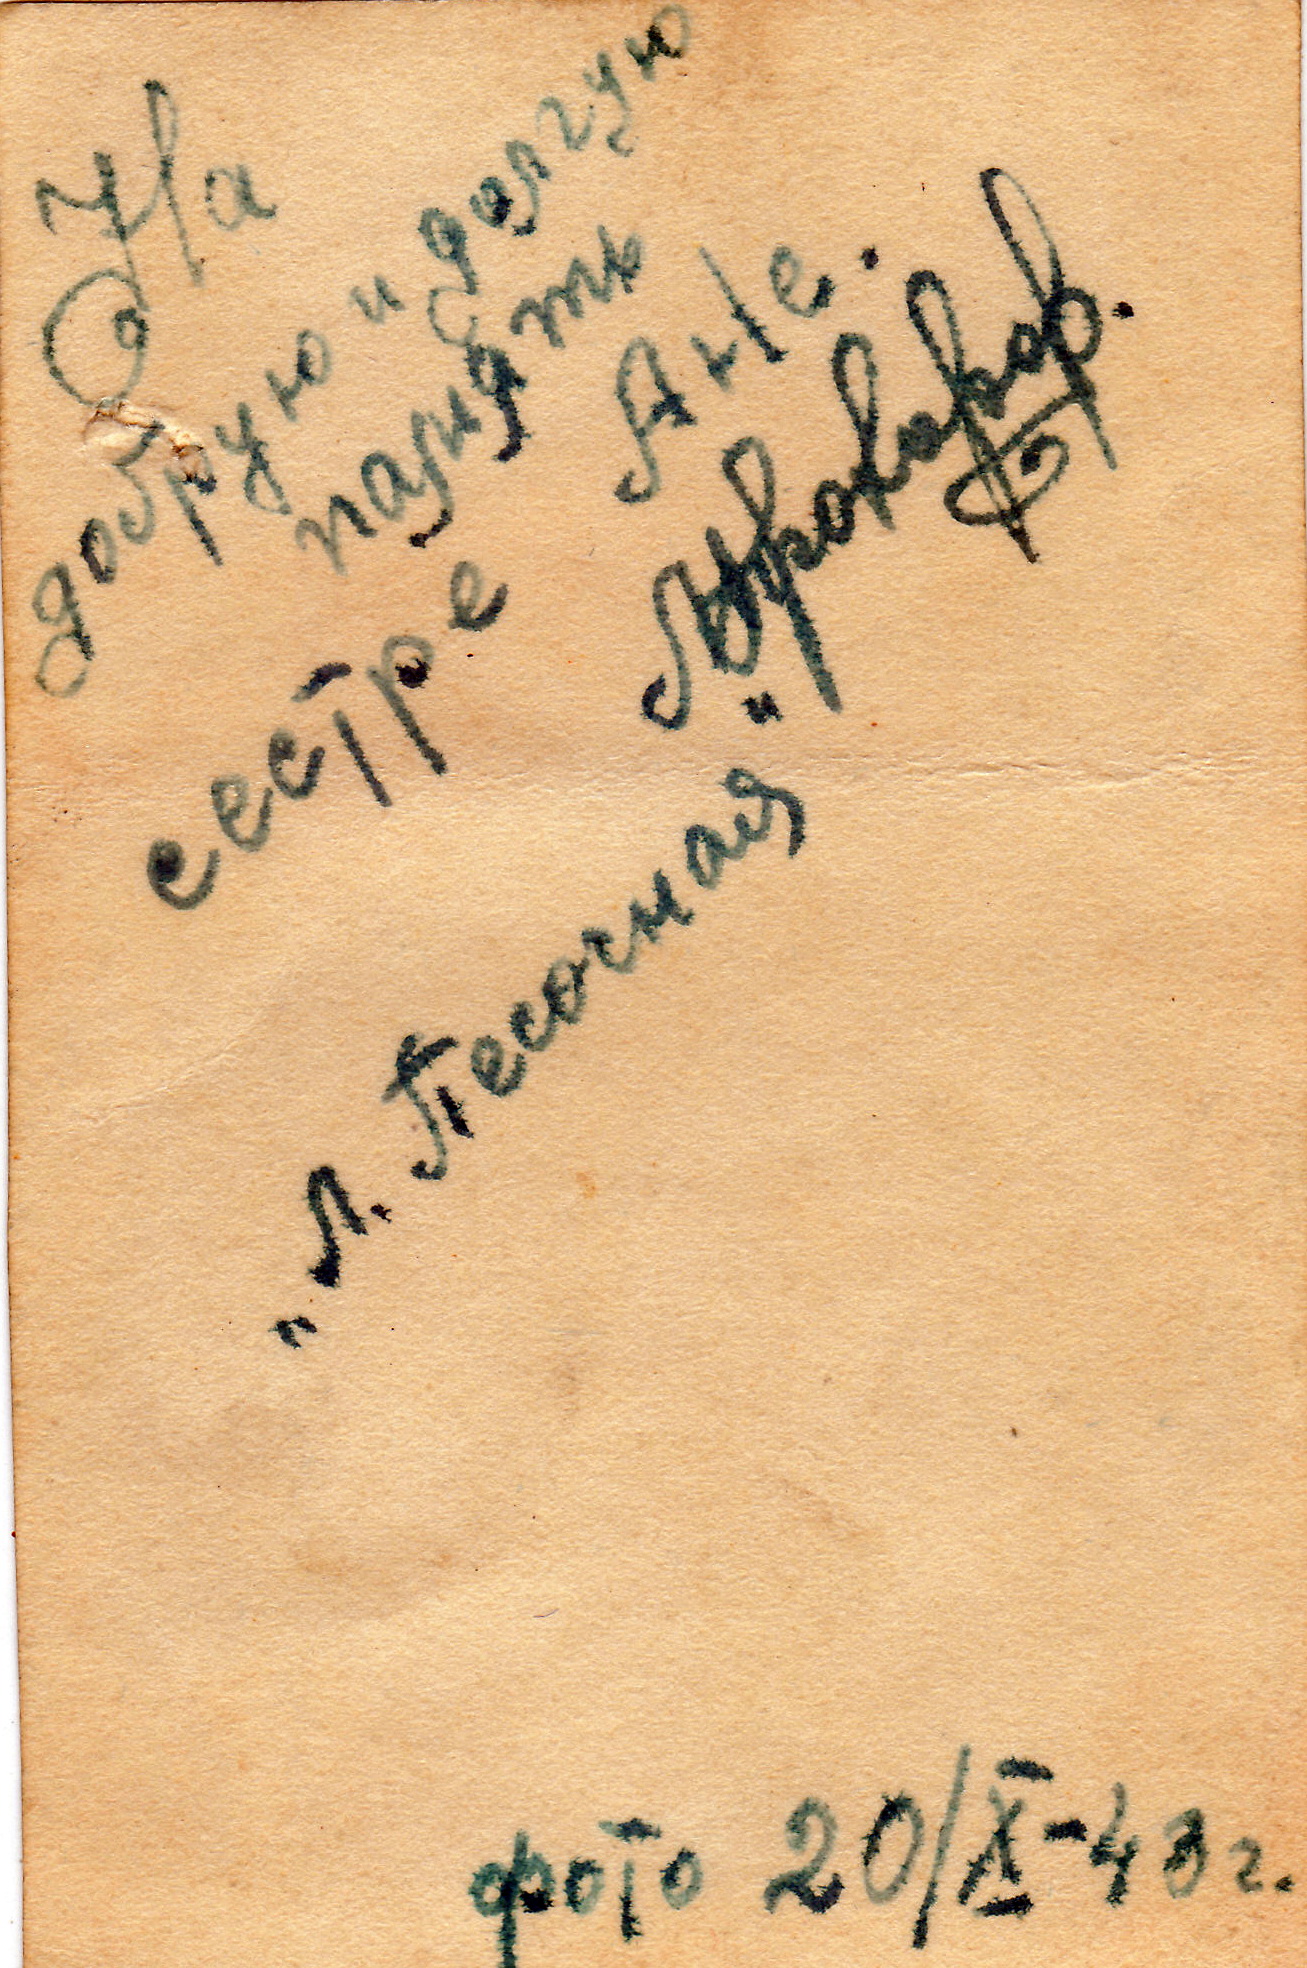 На
добрую и долгую
память
сестре Ане.
„Л. Песочная"
фото 20/X-43г.